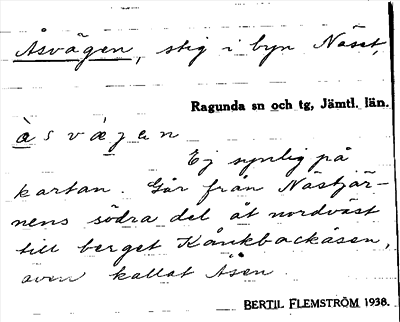 Åsvägen, stig i byn Näset,
Ragunda sn och tg, Jämtl. län.
Ej synlig på
kartan. Går från Nästjär-
nens södra del åt nordväst
till berget Kånkbackåsen,
även kallat Åsen.
BERTIL FLEMSTRÖM 1938.